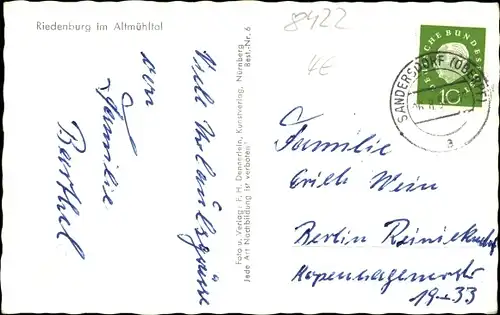 Riedenburg im Altmühltal
8422
4E
Viele Urlaubsgrüsse
von
Familie
Barthel
Foto u. Verlag: F. H. Dennerlein, Kunstverlag, Nürnberg
Best.-Nr. 6
Jede Art Nachbildung ist verboten
DEUTSCHE BUNDESPOST
10
SANDERSDORF
a
Familie
Erich Wein
Berlin Reinickendorf
Kopenhagenerstr
19-33